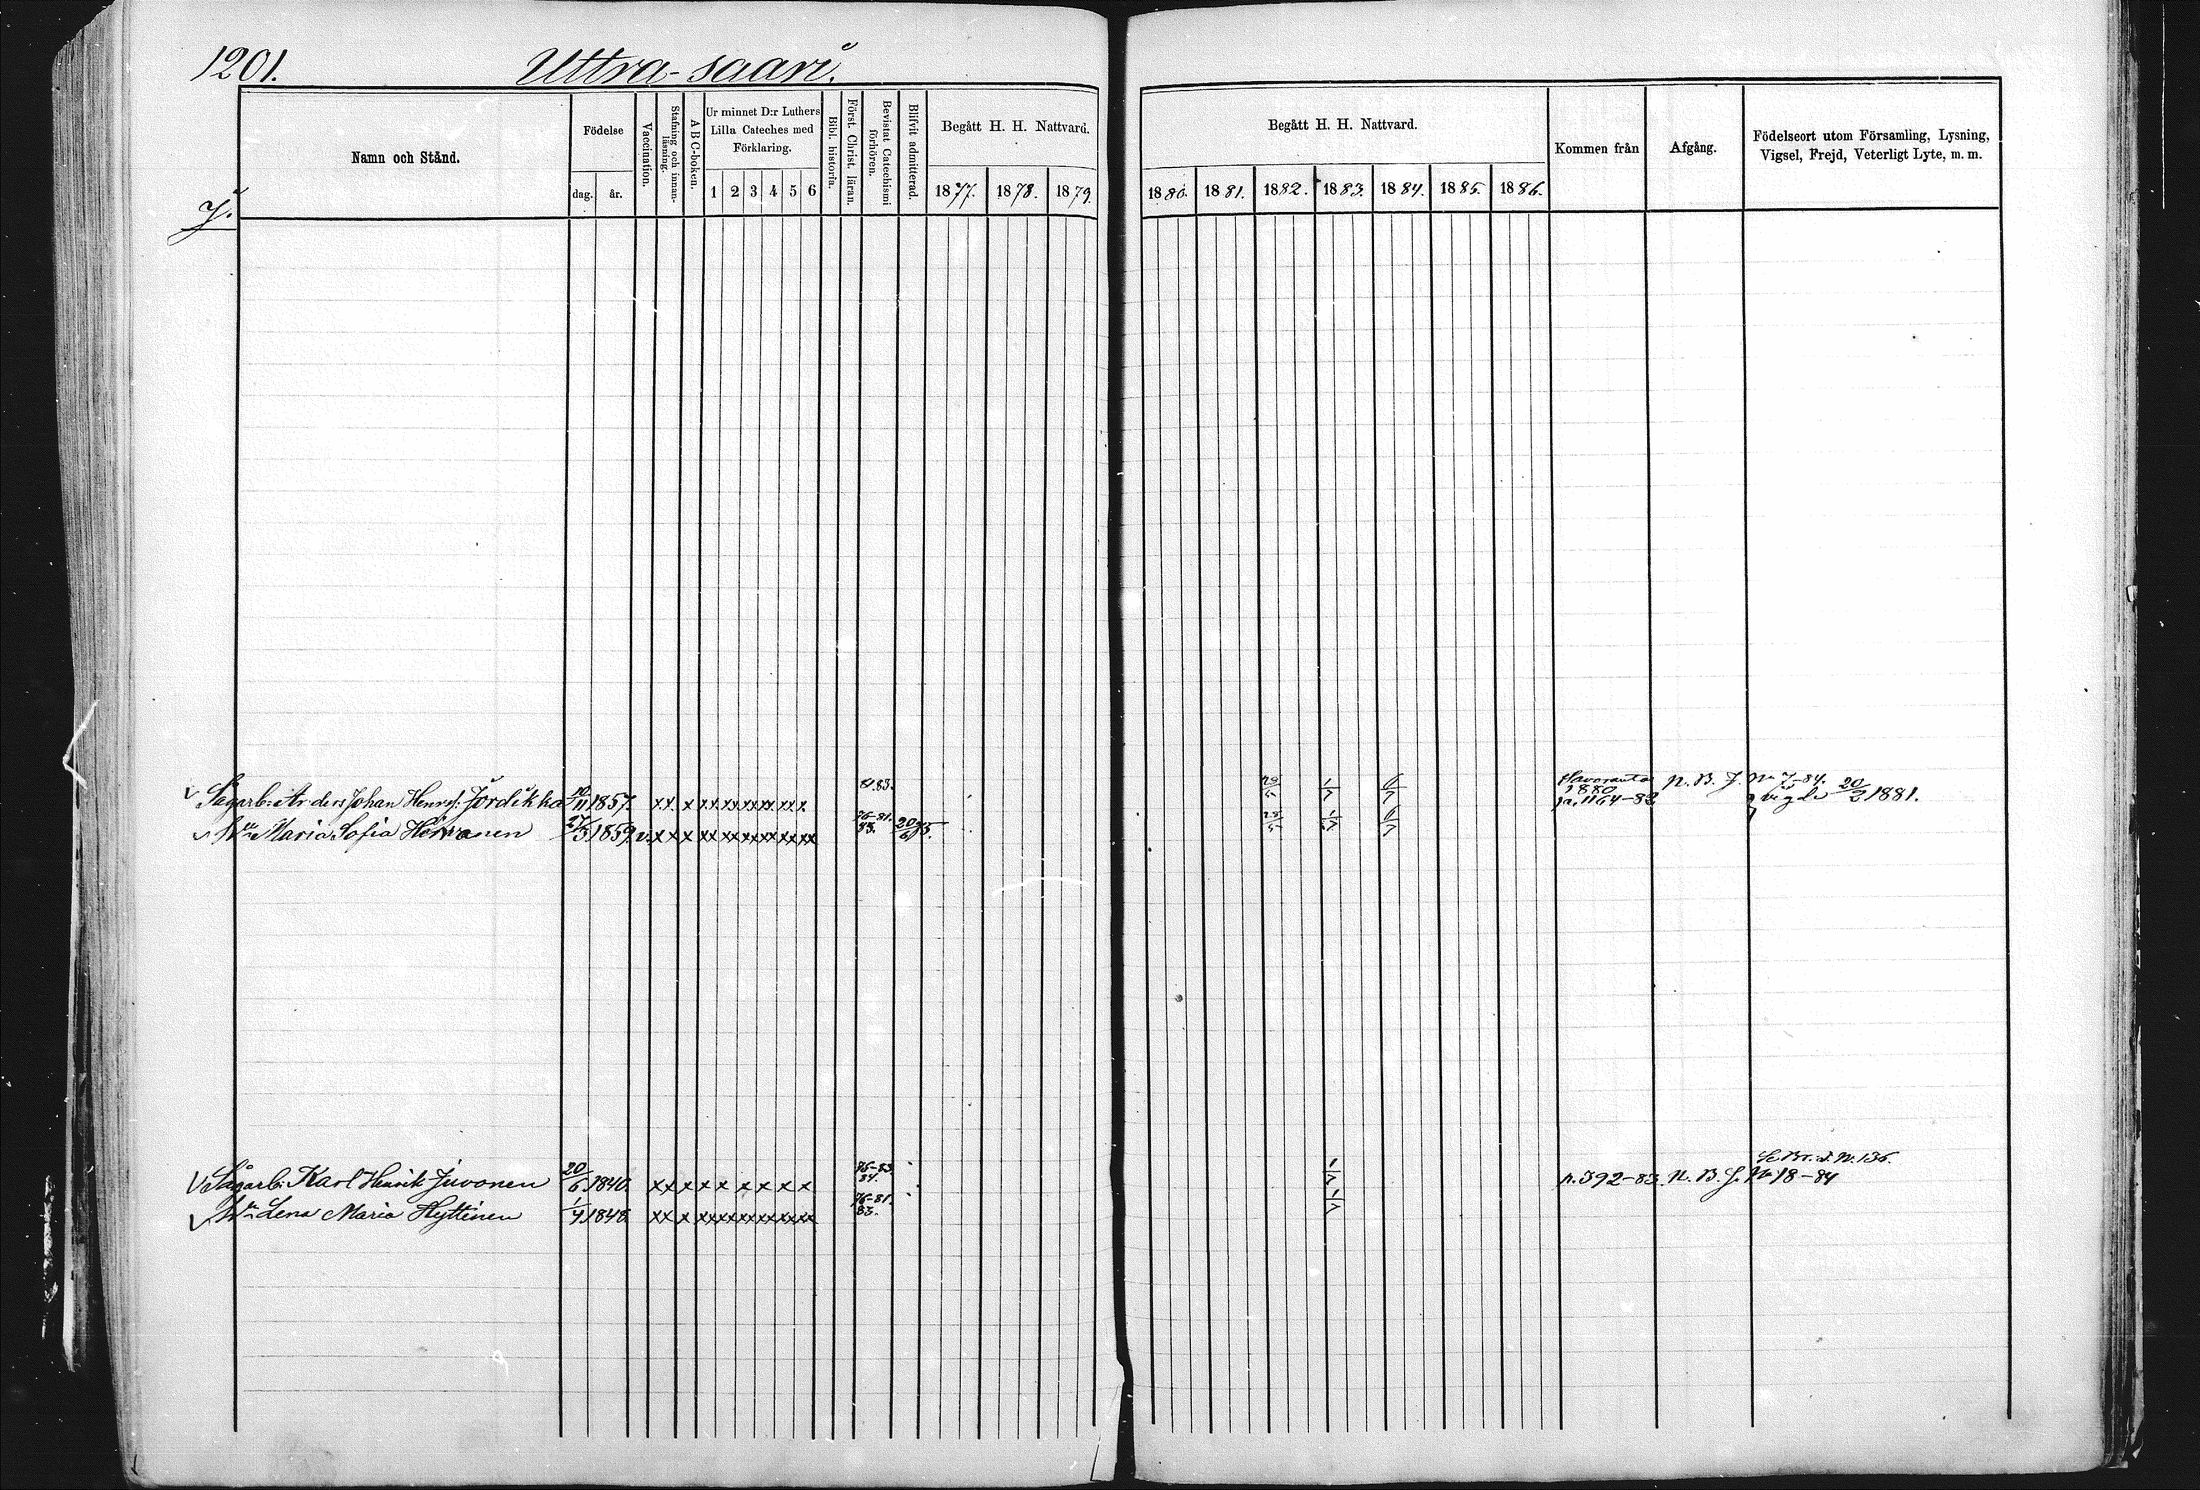 1201. Uttra-saari.
J.
Namn och Stånd.
Födelse
dag. år.
Vaccination.
Stafning och innan-läsning.
A B C-boken.
Ur minnet D:r Luthers
Lilla Cateches med
Förklaring.
1 2 3 4 5 6
Bibl. historia.
Först. Christ. läran.
Bevistat Catechismi förhören.
Blifvit admitterad.
Begått H. H. Nattvard.
1877. 1878. 1879.
Begått H. H. Nattvard.
1880. 1881. 1882. 1883. 1884. 1885. 1886.
Kommen från
Afgång.
Födelseort utom Församling, Lysning,
Vigsel, Frejd, Veterligt Lyte, m. m.
81.83.
Sågarb: Johan Jordikka 10/11 1857. x x x xx xx xx xx x x 1880 p. 1164-82 N. B. J. No 7-84. vigde 20/2 1881.
76-81. 83.
Maria Sofia Hirvonen 27/3 1859. v. x x x xx xx xx xx xx xx 20/6 75.
Se Br. d. N. 136.
76-83. 84.
Sågarb: Karl Henrik Juvonen 20/6 1840. x x x x x x x x x 1/7 p. 392-83. N. B. J. No 18-84
76-81. 83.
Lena Maria Hyttinen 1/4 1848. x x x xx xx xx xx xx xx 1/7